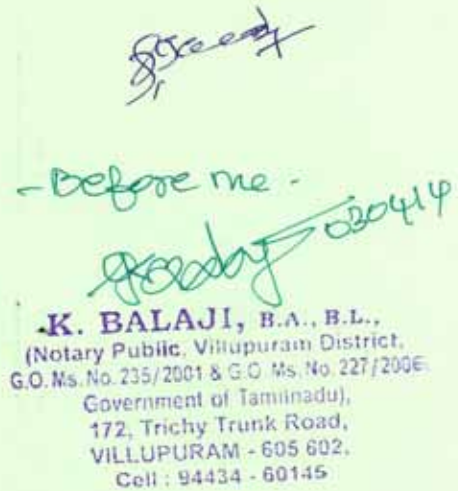 - Before me -
030414
K. BALAJI, B.A., B.L.,
(Notary Public, Villupuram District,
G.O. Ms. No. 235/2001 & G.O. Ms. No. 227/2006,
Government of Tamilnadu),
172, Trichy Trunk Road,
VILLUPURAM - 605 602.
Cell : 94434 - 60145